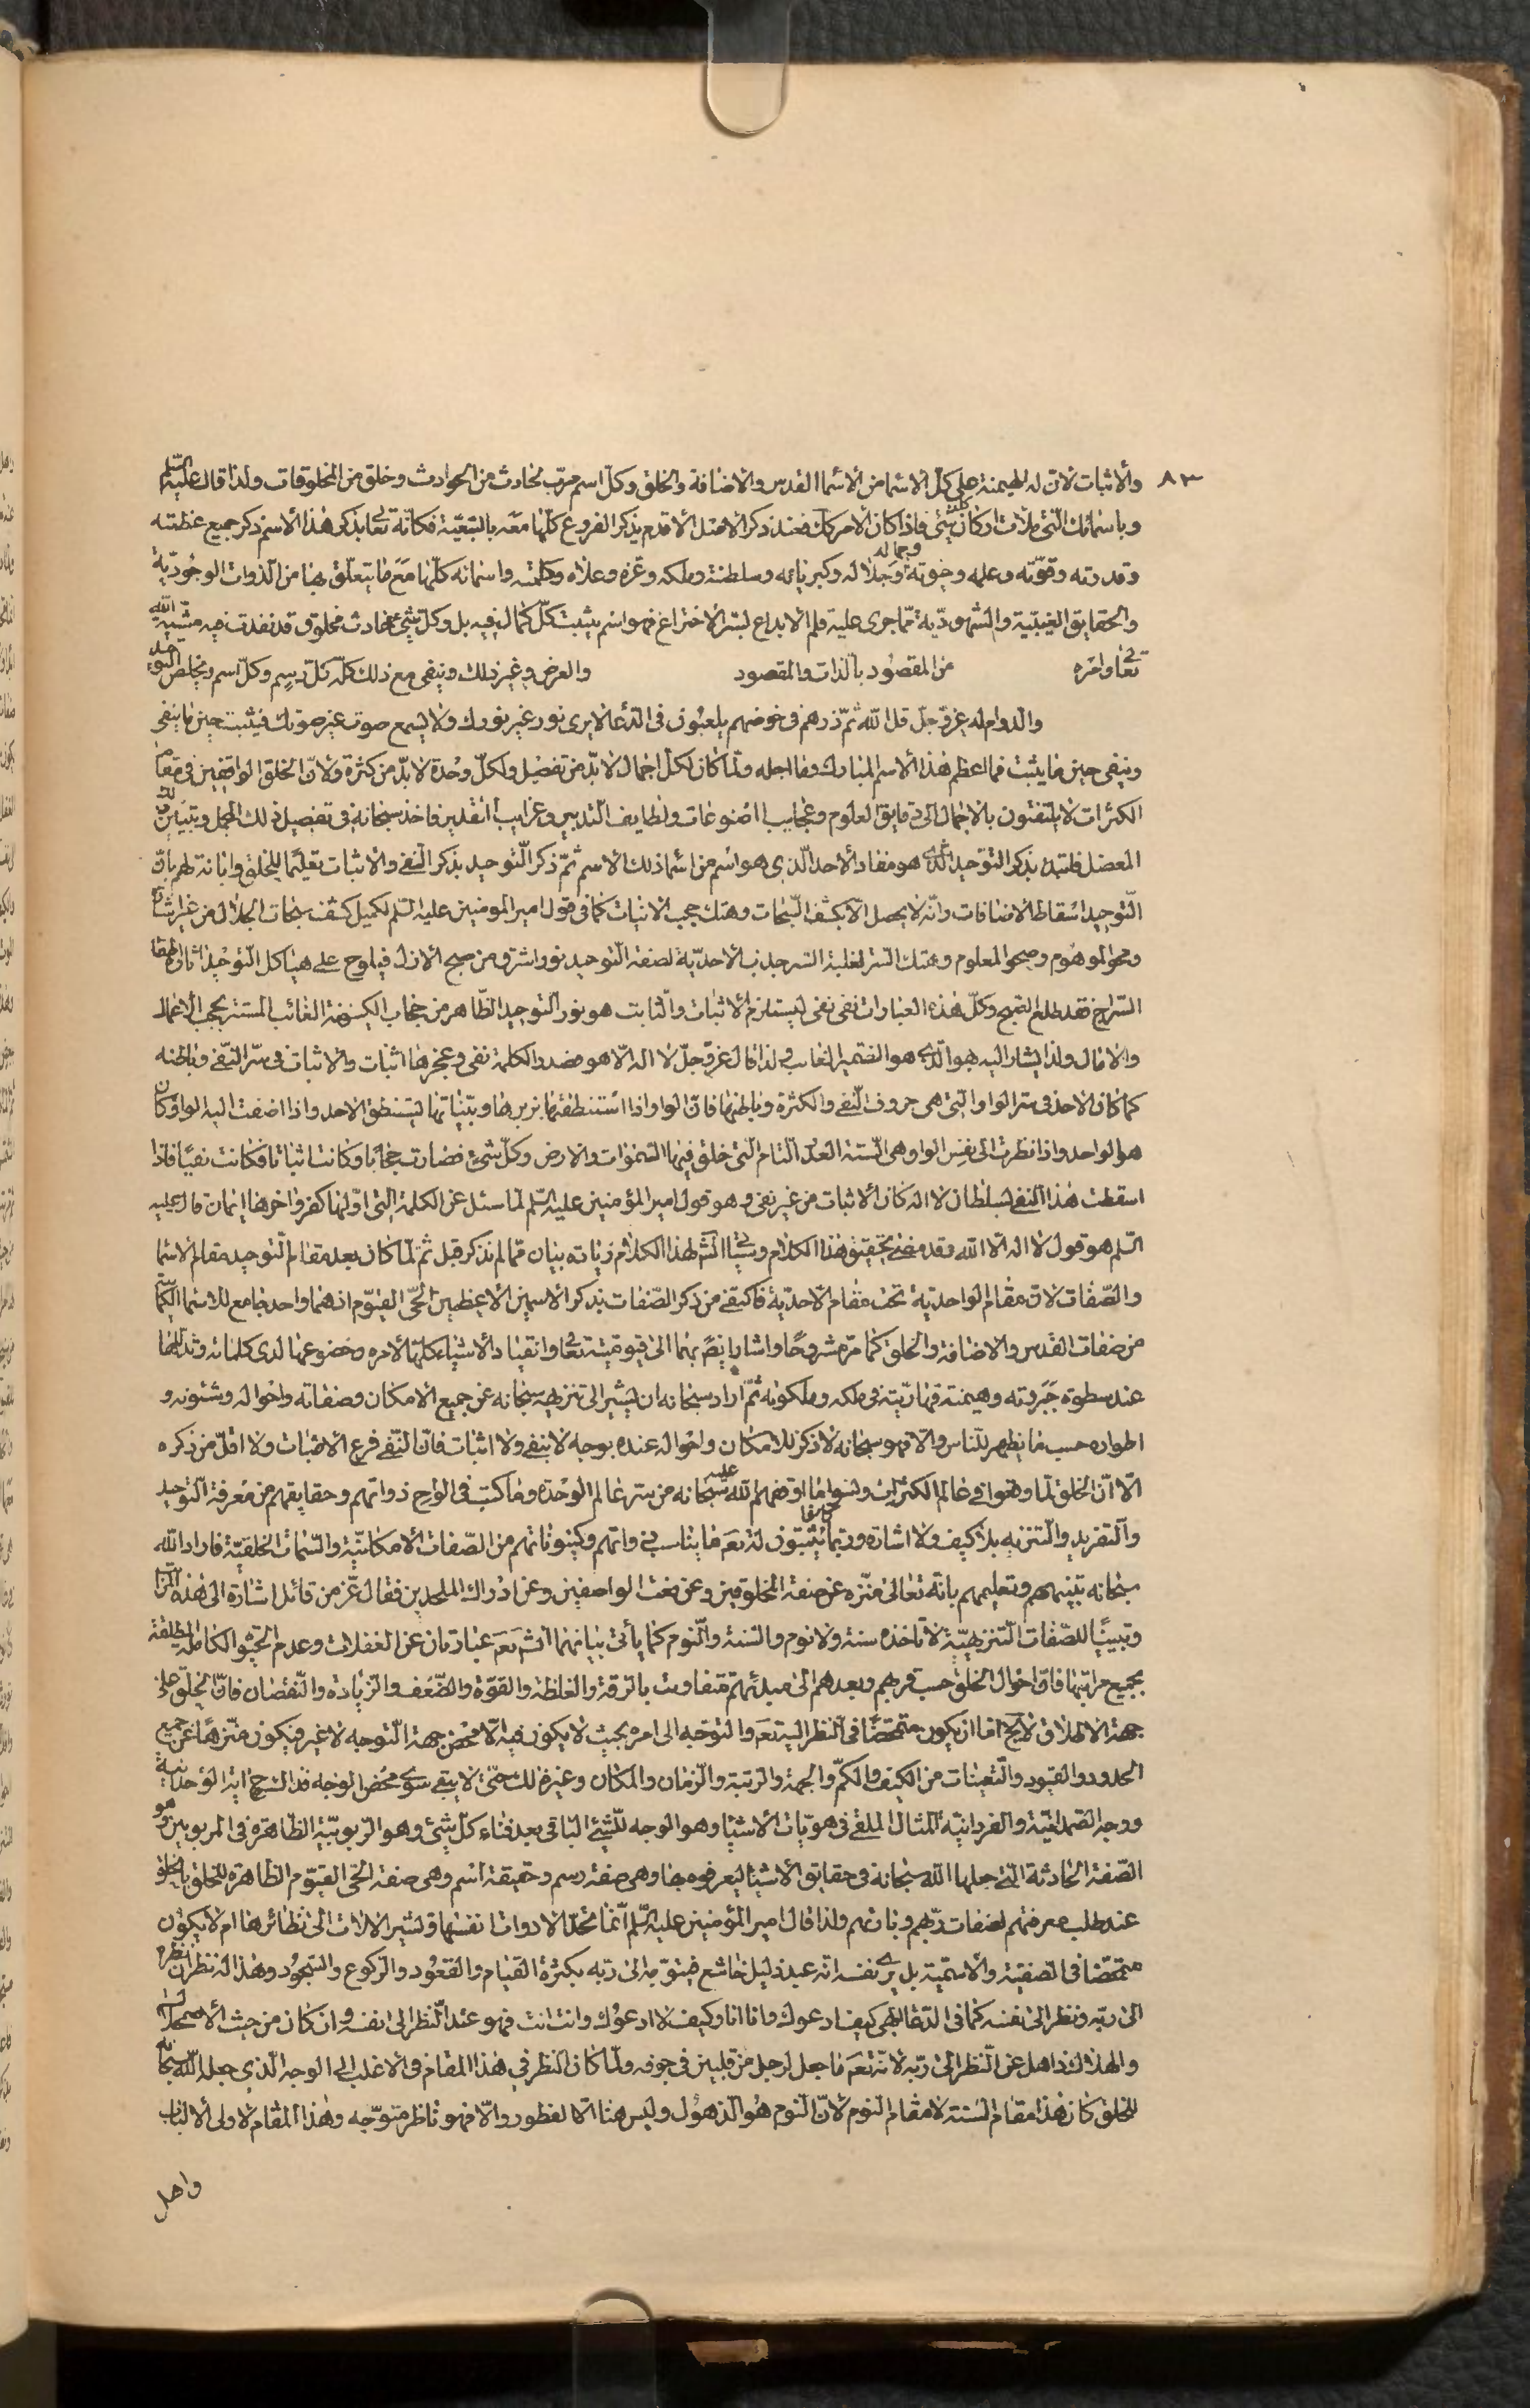 ٨٣
والاثبات لان له الهيمنة على كل الاسما من الاسما القدس والاضافة والخلق وكل اسم مربّ لحادث من الحوادث وخلق من المخلوقات ولذا قال عليه السلم
وباسمائك التى ملأت اركان كلشئ فاذا كان الامر كك فعند ذكر الاصل الاقدم يذكر الفروع كلّها معه بالتبعيّة فكانّه تعا بذكر هذا الاسم ذكر جميع عظمته
وقدرته وقوّته وعلمه وحيوته وجماله وجلاله وكبريائه وسلطنته وملكه وعزه وعلاه وكلمته واسمائه كلّها مع ما يتعلّق بها من الذوات الوجوديّة
والحقايق الغيبيّة والشهوديّة ممّا جرى عليه قلم الابداع لسّر الاختراع فهو اسم يثبت كلّ كمال فيه بل وكلّ شئ حادث مخلوق قد نفذت فيه مشيّة الله
تعا وامره من المقصود بالذات والمقصود والعرض وغير ذلك وينفى مع ذلك كلّه كلّ رسم وكلّ اسم ويخلص التوحيد
والدوام له عزّ وجلّ قل الله ثمّ ذرهم فى خوضهم يلعبون فى الدعا لا يرى نور غير نورك ولا يسمع صوت غير صوتك فيثبت حين ما ينفى
وينفى حين ما يثبت فما اعظم هذا الاسم المبارك وما اجله ولمّا كان لكل اجمال لا بدّ من تفصيل ولكلّ وحدة لا بدّ من كثرة ولانّ الخلق الواقفين فى مقام
الكثرات لا يلتفتون بالاجمال الى دقايق العلوم وعجايب المصنوعات ولطايف التدبير وغرايب التقدير فاخذ سبحانه فى تفصيل ذلك المجمل وتبيين ذلك
المعضل فابتدء بذكر التوحيد الذى هو مفاد الاحد الّذى هو اسم من اسما ذلك الاسم ثمّ ذكر التوحيد بذكر النفى والاثبات تعليما للخلق وابانة لهم بانّ
التّوحيد اسقاط الاضافات وانّه لا يحصل الّا بكشف السّبحات وهتك حجب الانيّات كما فى قول امير المومنين عليه السّلم لكميل كشف سبحات الجلال من غير اشارة
ومحو الموهوم وصحو المعلوم وهتك السّتر لغلبة السّر جذب الاحديّة لصفة التّوحيد نور اشرق من صبح الازل فيلوح على هياكل التّوحيد اثاره اطفا
السّراج فقد طلع الصّبح وكلّ هذه العبارات نفى نفى ليستلزم الاثبات والثابت هو نور التّوحيد الظّاهر من حجاب الكينونة الغائب المستتر بحجب الاعمال
والامال ولذا يشار اليه بهو الّذى هو الضّمير الغايب ولذا قال عزّ وجلّ لا اله الّا هو فصدر الكلمة نفى وعجزها اثبات والاثبات فى سّر النّفى وباطنه
كما كان الاحد فى ستر الواو الّتى هى حروف النّفى والكثرة وباطنها فانّ الواو اذا استنطقتها بزبرها وبيّناتها ليستنطق الاحد واذا اضفت اليه الواو كان
هو الواحد واذا نظرت الى نفس الواو وهى السّتة العدد التام الّتى خلق فيها السّموات والارض وكلّ شئ فصارت حجابا وكانت اثباتا فكانت نفيا فاذا
اسقطت هذا النّفى بسلطان لا اله كان الاثبات من غير نفى وهو قول امير المؤمنين عليه السّلم لما سئل عن الكلمة الّتى اوّلها كفر واخرها ايمان قال عليه
السّلم هو قول لا اله الّا الله وقد مضى تحقيق هذا الكلام وسياتى انش لهذا الكلام زيادة بيان ممّا لم نذكر قبل ثمّ لمّا كان بعد مقام التّوحيد مقام الاسما
والصّفات لانّ مقام الواحديّة تحت مقام الاحديّة فاكتفى من ذكر الصّفات بذكر الاسمين الاعظمين الحىّ القيّوم اذ هما واحد جامع للاسما الكماليّة
من صفات القدس والاضافة والخلق كما مرّ مشروحا واشار ايضا بهما الى قيوميّته تعا وانقياد الاشياء كلّها لامره وخضوعها لدى كلماته وتذللها
عند سطوة جبروته وهيمنة قهاريّته فى ملكه وملكوته ثمّ اراد سبحانه ان يشير الى تنزيهه سبحانه عن جميع الامكان وصفاته واحواله وشئونه و
اطواره حسب ما يظهر للناس والّا فهو سبحانه لا ذكر للامكان واحواله عنده بوجه لا بنفى ولا اثبات فانّ النّفى فرع الاثبات ولا اقلّ من ذكره
الّا انّ الخلق لما وقفوا فى عالم الكثرات ونسوا ما اوقفهم الله سبحانه عليه من ستر عالم الوحدة وما كتب فى الواح ذواتهم وحقايقهم من معرفة التّوحيد
والتّفريد والتنزيه بلا كيف ولا اشارة وربّما يثبتون له تعَ ما يناسب ذواتهم وكينوناتهم من الصّفات الامكانيّة والسّمات الخلقيّة فاراد الله
سبحانه تنبيههم وتعليمهم بانّه تعالى منزّه عن صفة المخلوقين وعن نعت الواصفين وعن ادراك الملحدين فقال عزّ من قائل اشارة الى هذه
وتبيينا للصّفات التّنزيهيّة لا تاخذه سنة ولا نوم والسّنة والنّوم كما ياتى بيانهما انش تعَ عبارتان عن الغفلات وعدم التّوجّه الكامل المطلقة
بجميع مراتبها فانّ احوال الخلق حسب قربهم وبعدهم الى مبدئهم متفاوت بالرّقة والغلظة والقوّة والضّعف والزّيادة والنّقصان فانّ الخلق على
جهة الاطلاق لا يخ اما ان يكون متمحضا فى النظر اليه تعَ والتوجّه الى امره بحيث لا يكون فيه الّا محض جهة التّوجه لا غير فيكون منزّها عن جميع
الحدود والقيود والتّعينات من الكيف والكمّ والجهة والرتبة والزمان والمكان وغير ذلك حتّى لا يبقى سوى محض الوجه فذلك حجاب الوحدانية
ووجه الصّمدانيّة والفردانيّة المثال الملقى فى هويّات الاشيا وهو الوجه للشّئ الباقى بعد فناء كلّ شئ وهو الرّبوبيّة الظّاهرة فى المربوبين وهو
الصّفة الحادثة الّتى جعلها الله سبحانه فى حقايق الاشيا ليعرفوه بها وهى صفة رسم وحقيقة اسم وهى صفة الحىّ القيّوم الظاهرة للخلق بالخلق
عند طلب معرفتهم لصفات ربّهم وبانّهم ولذا قال امير المؤمنين عليه السّلم انّما تحدّ الادوات انفسها وتشير الالات الى نظائرها ام لا يكون
متمحضا فى الصفتية والاسميّة بل يرى نفسه انّه عبد ذليل خاشع فيتوجّه الى ربّه بكثرة القيام والقعود والرّكوع والسّجود وهذا له نظران نظره
الى ربّه ونظر الى نفسه كما فى الدّعا الهى كيف ادعوك وانا انا وكيف لا ادعوك وانت انت فهو عند النّظر الى نفسه وان كان من حيث الاضمحلال
والهلاك ذاهل عن النّظر الى ربّه لانّه تعَ ما جعل لرجل من قلبين فى جوفه ولمّا كان النظر فى هذا المقام فى الاغلب الى الوجه الّذى جعله الله سبحانه
للخلق كان هذا مقام السّنة لا مقام النوم لانّ النوم هو الذهول وليس هنا الّا الفطور والّا فهو ناظر متوجّه وهذا المقام لاولى الالباب
واهل